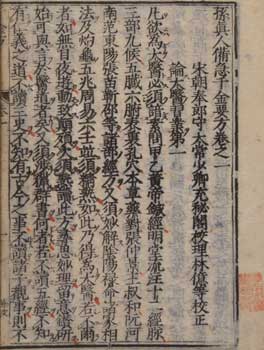 孫真人備急千金要方卷之一
宋朝奉郎守太常少卿充秘閣校理林億等校正
論大醫習業第一
凡欲為大醫必須諳素問甲乙黃帝鍼經明堂流注十二經脈
三部九候五臟六腑表裏孔穴本草藥對張仲景王叔和阮河
南范東陽張苗靳邵等諸部經方又須妙解陰陽祿命諸家相
法及灼龜五兆周易六壬並須精熟如此乃得為大醫若不爾
者如無目夜遊動致顛殞次須熟讀此方尋思妙理留意鑽研
始可與言於醫道者矣又須涉獵群書何者若不讀五經不知
有仁義之道不讀三史不知有古今之事不讀諸子覩事則不